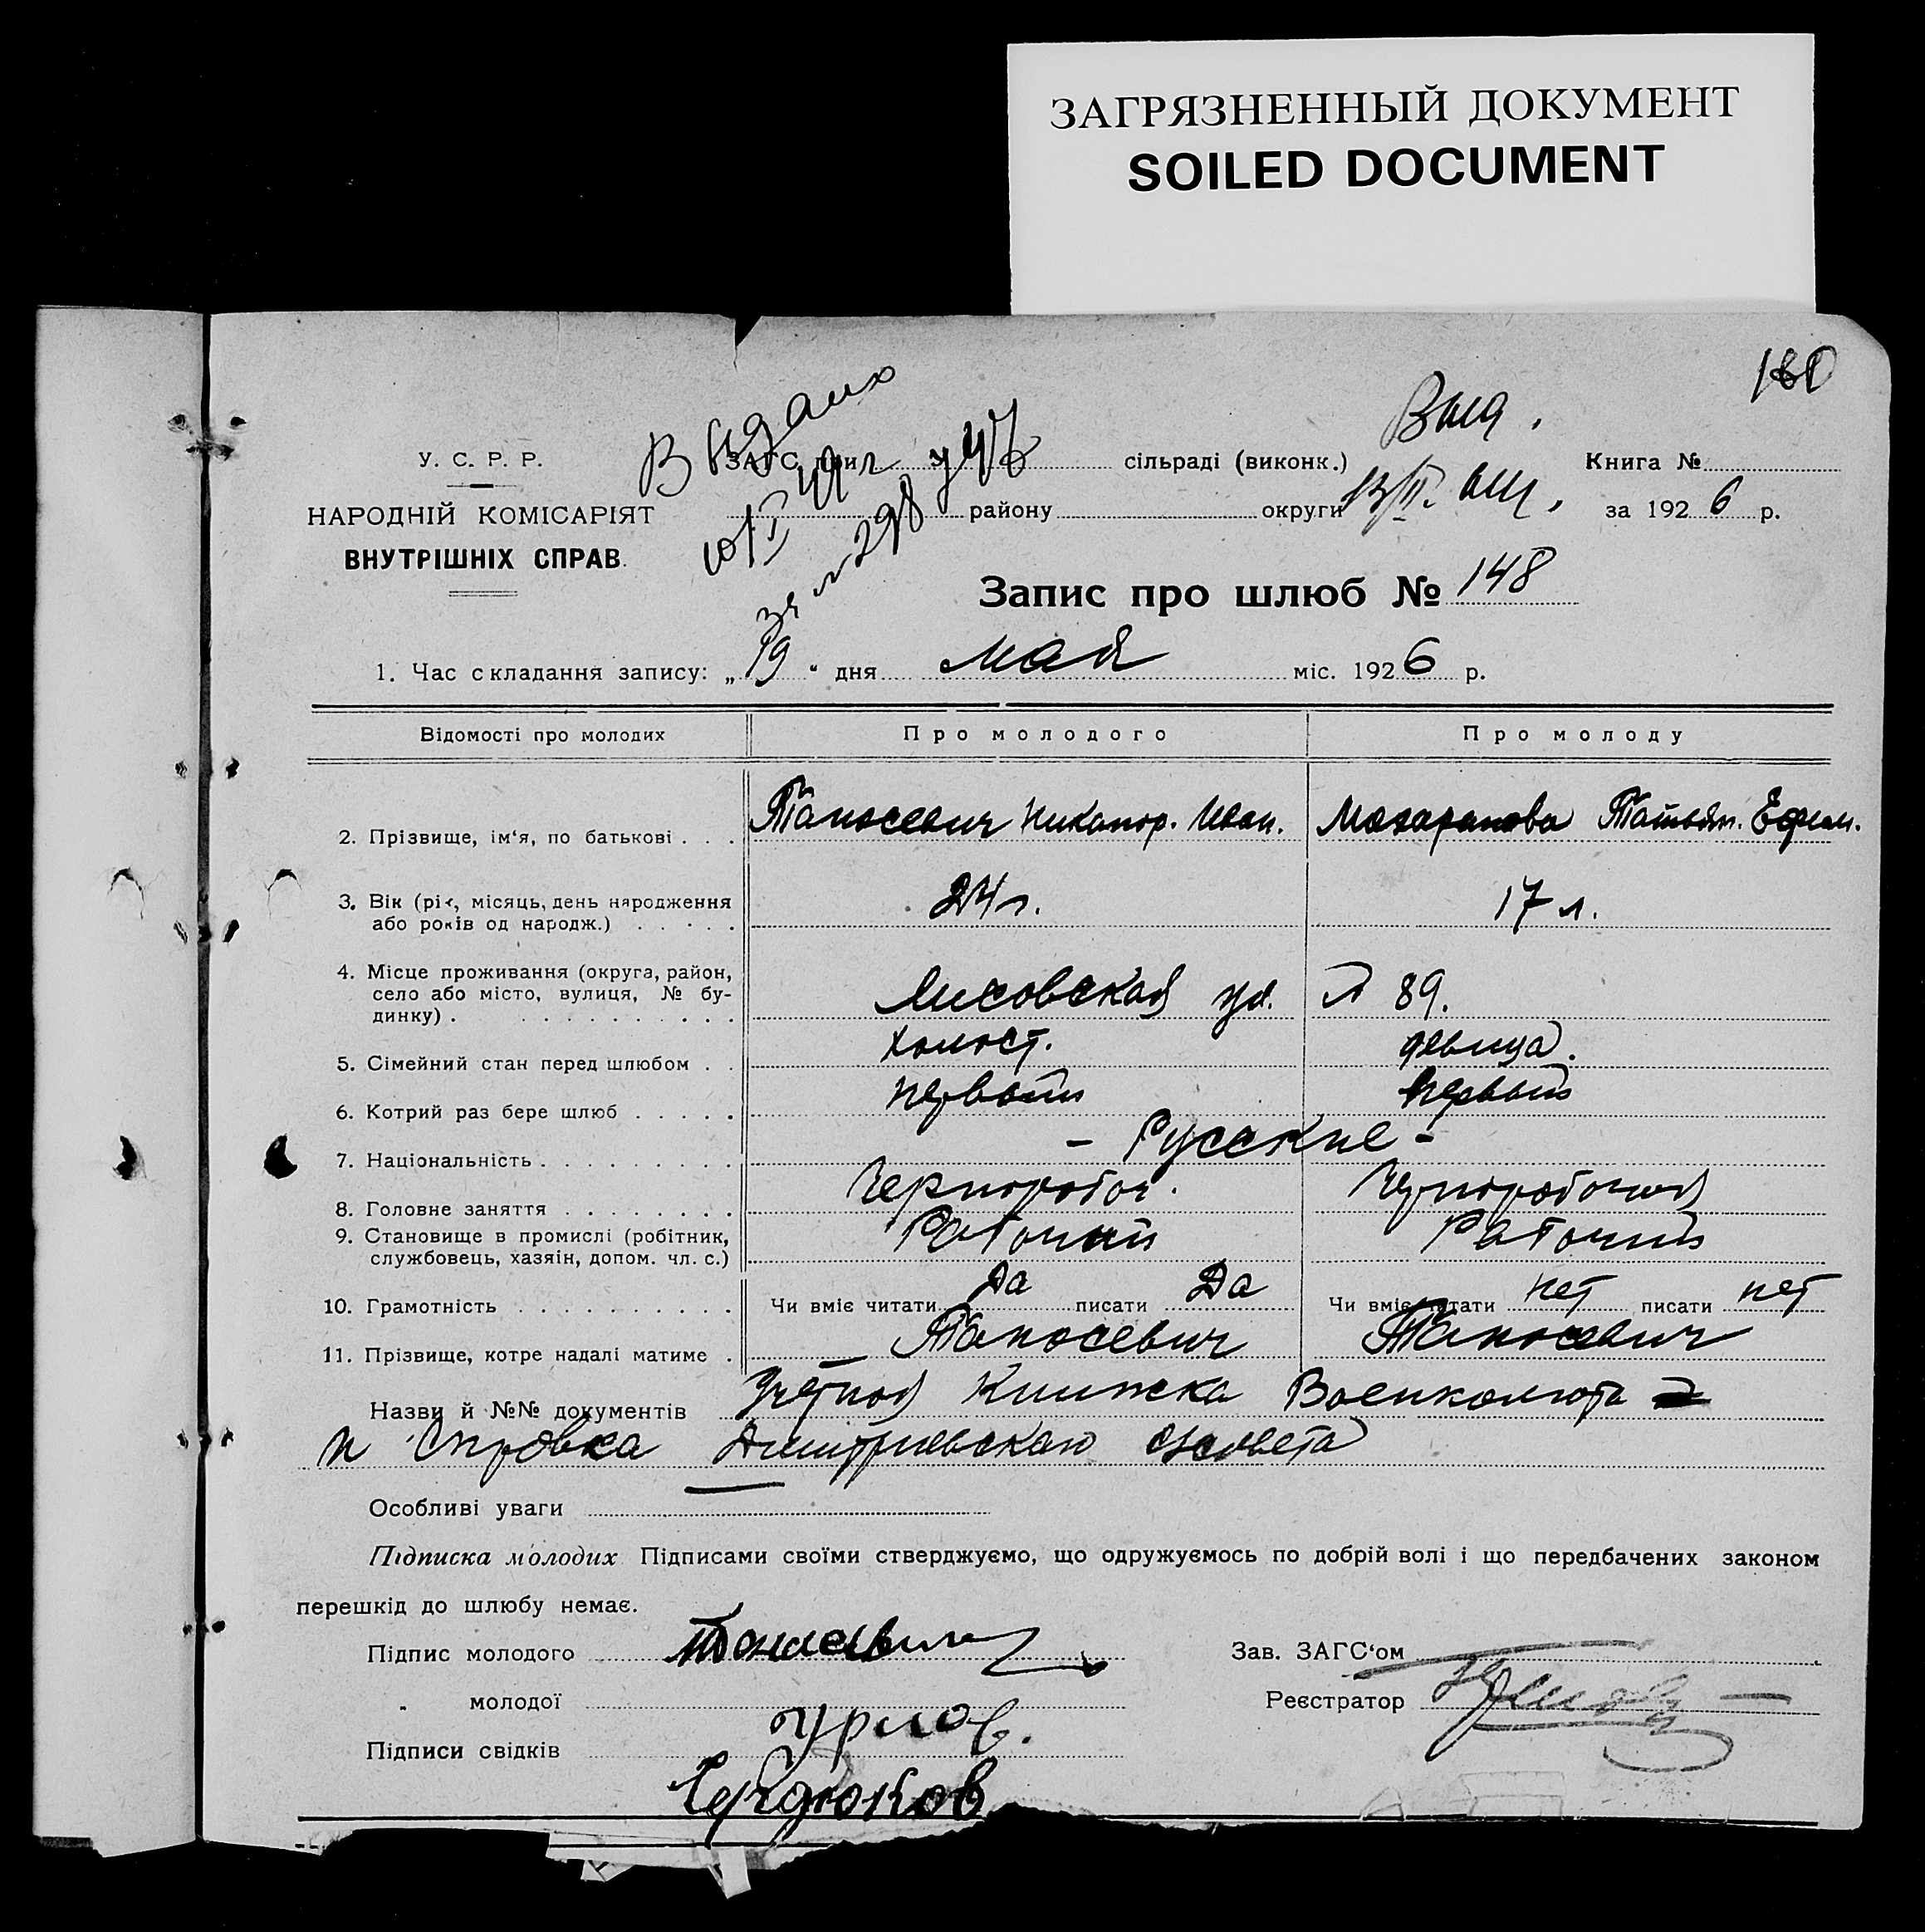 ЗАГРЯЗНЕННЫЙ ДОКУМЕНТ
SOILED DOCUMENT
У. С. Р. Р.
НАРОДНІЙ КОМІСАРІЯТ
ВНУТРІШНІХ СПРАВ.
Выдано
ЗАГС при сільраді (виконк.) Книга №
району округи за 1926 р.
за № 298
Запис про шлюб № 148
1. Час складання запису: „19“ дня мая міс. 1926 р.
Відомості про молодих Про молодого Про молоду
2. Прізвище, ім‘я, по батькові . . . Танасевич Никанор. Иван. Татьян. Ефрем.
3. Вік (рік, місяць, день народження 24 г. 17 л.
або років од народж.) . . . . .
4. Місце проживання (округа, район,
село або місто, вулиця, № бу- Лисовская ул. № 89.
динку) . . . . . . . . . . .
5. Сімейний стан перед шлюбом . . холост. девица.
6. Котрий раз бере шлюб . . . . . первый первый
7. Національність . . . . . . . . . - Русские -
8. Головне заняття . . . . . . . . Чернорабоч. Чернорабочая
9. Становище в промислі (робітник, Рабочий Рабочий
службовець, хазяін, допом. чл. с.)
10. Грамотність . . . . . . . . . . Чи вміє читати Да писати Да Чи вміє читати нет писати нет
11. Прізвище, котре надалі матиме . Танасевич Танасевич
Назви й №№ документів Учетная Книжка Военкомата
и Справка Дмитриевскаго с/совета
Особливі уваги
Підписка молодих Підписами своїми стверджуємо, що одружуємось по добрій волі і що передбачених законом
перешкід до шлюбу немає.
Підпис молодого Танасевич Зав. ЗАГС‘ом
„ молодої Реєстратор
Підписи свідків